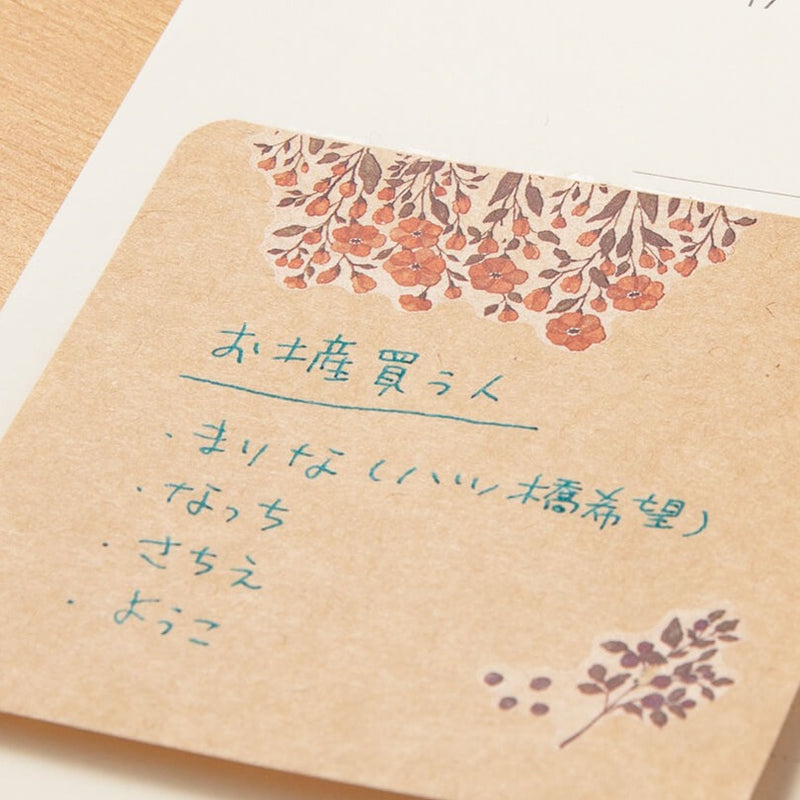 お土産買う人
・まりな(八ツ橋希望)
・なっち
・さちえ
・ようこ